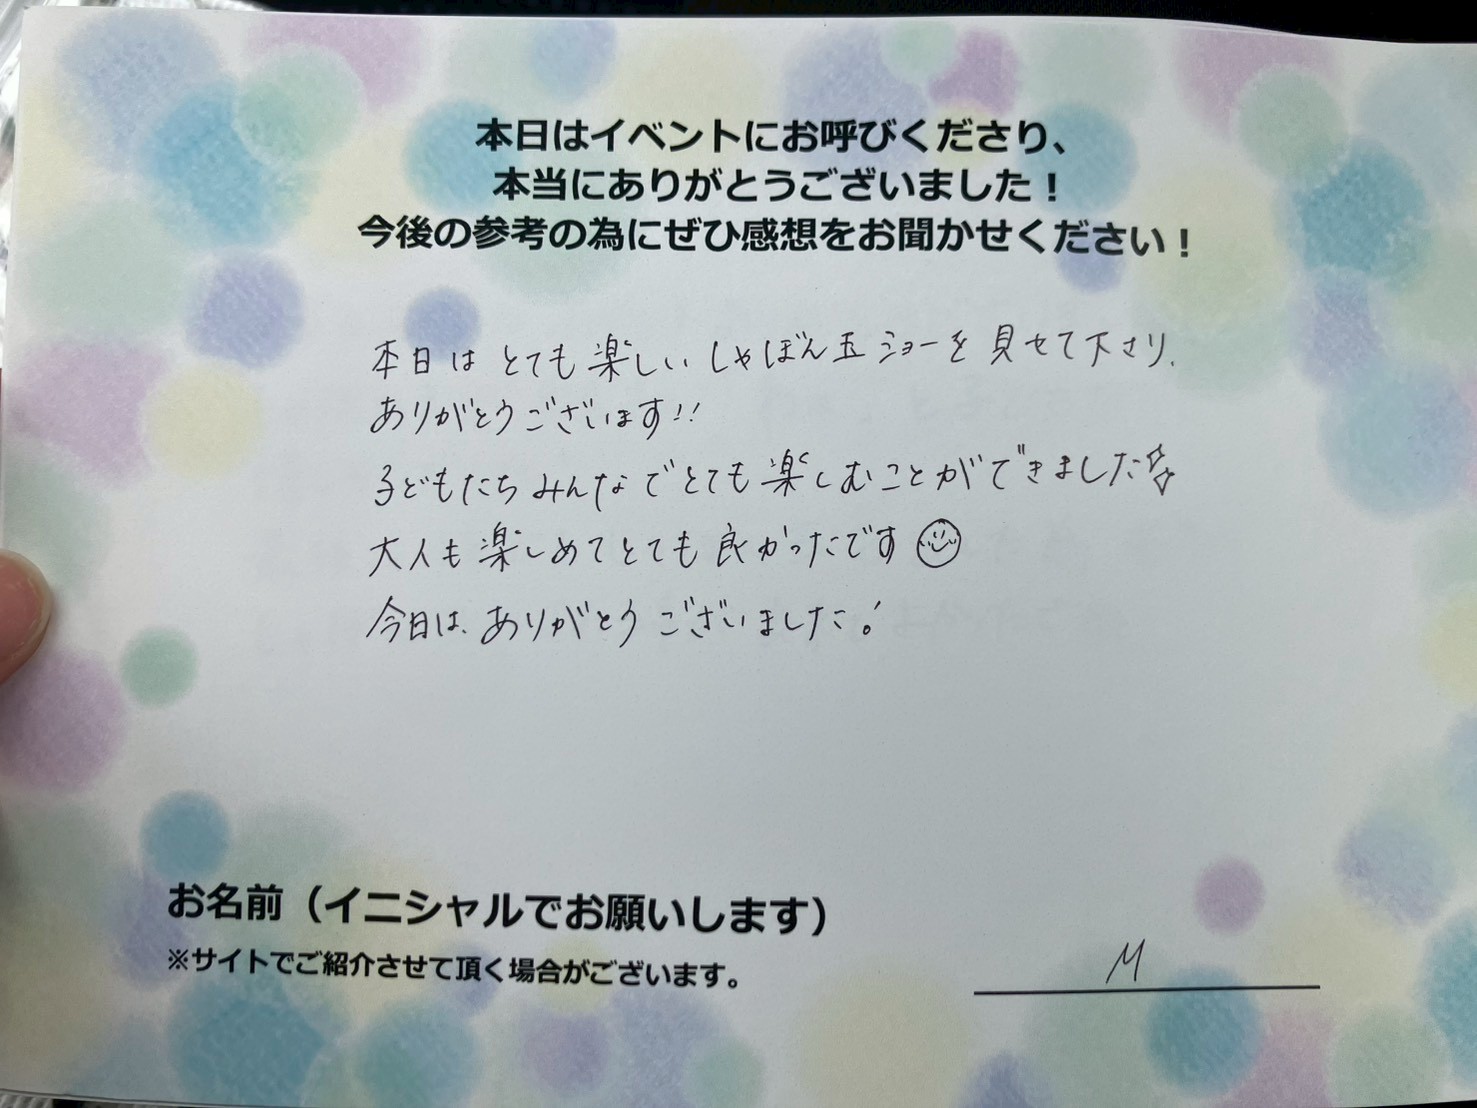 本日はイベントにお呼びくださり、
本当にありがとうございました！
今後の参考の為にぜひ感想をお聞かせください！
本日はとても楽しいしゃぼん玉ショーを見せて下さり、
ありがとうございます!!
子どもたちみんなでとても楽しむことができました
大人も楽しめてとても良かったです
今日は、ありがとうございました!
お名前（イニシャルでお願いします）
※サイトでご紹介させて頂く場合がございます。
M